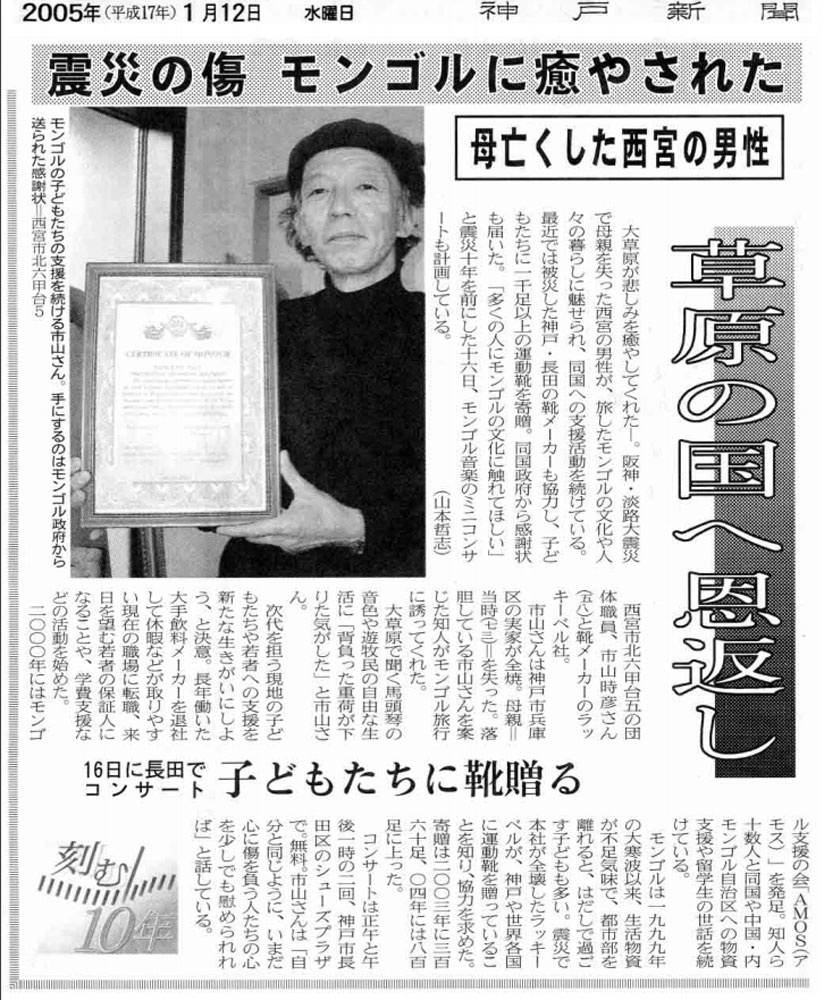 2005年(平成17年)1月12日　水曜日　神戸新聞
震災の傷 モンゴルに癒やされた
母亡くした西宮の男性
草原の国へ恩返し
大草原が悲しみを癒やしてくれた―。阪神・淡路大震災
で母親を失った西宮の男性が、旅したモンゴルの文化や人
々の暮らしに魅せられ、同国への支援活動を続けている。
最近では被災した神戸・長田の靴メーカーも協力し、子ど
もたちに一千足以上の運動靴を寄贈。同国政府から感謝状
も届いた。「多くの人にモンゴルの文化に触れてほしい」
と震災十年を前にした十六日、モンゴル音楽のミニコンサ
ートも計画している。
(山本哲志)
モンゴルの子どもたちの支援を続ける市山さん。手にするのはモンゴル政府から
送られた感謝状=西宮市北六甲台5
CERTIFICATE OF HONOUR
西宮市北六甲台五の団
体職員、市山時彦さん
(五八)と靴メーカーのラッ
キーベル社。
市山さんは神戸市兵庫
区の実家が全焼。母親=
当時(七三)=を失った。落
胆している市山さんを案
じた知人がモンゴル旅行
に誘ってくれた。
大草原で聞く馬頭琴の
音色や遊牧民の自由な生
活に「背負った重荷が下
りた気がした」と市山さ
ん。
次代を担う現地の子ど
もたちや若者への支援を
新たな生きがいにしよ
う、と決意。長年働いた
大手飲料メーカーを退社
して休暇などが取りやす
い現在の職場に転職、来
日を望む若者の保証人に
なることや、学費支援な
どの活動を始めた。
二〇〇〇年にはモンゴ
16日に長田で
コンサート
子どもたちに靴贈る
ル支援の会「AMOS(ア
モス)」を発足。知人ら
十数人と同国や中国・内
モンゴル自治区への物資
支援や留学生の世話を続
けている。
モンゴルは一九九九年
の大寒波以来、生活物資
が不足気味で、都市部を
離れると、はだしで過ご
す子どもも多い。震災で
本社が全壊したラッキー
ベルが、神戸や世界各国
に運動靴を贈っているこ
とを知り、協力を求めた。
寄贈は二〇〇三年に三百
六十足、〇四年には八百
足に上った。
コンサートは正午と午
後一時の二回、神戸市長
田区のシューズプラザ
で。無料。市山さんは「自
分と同じように、いまだ
心に傷を負う人たちの心
を少しでも慰められれ
ば」と話している。
刻む
10年